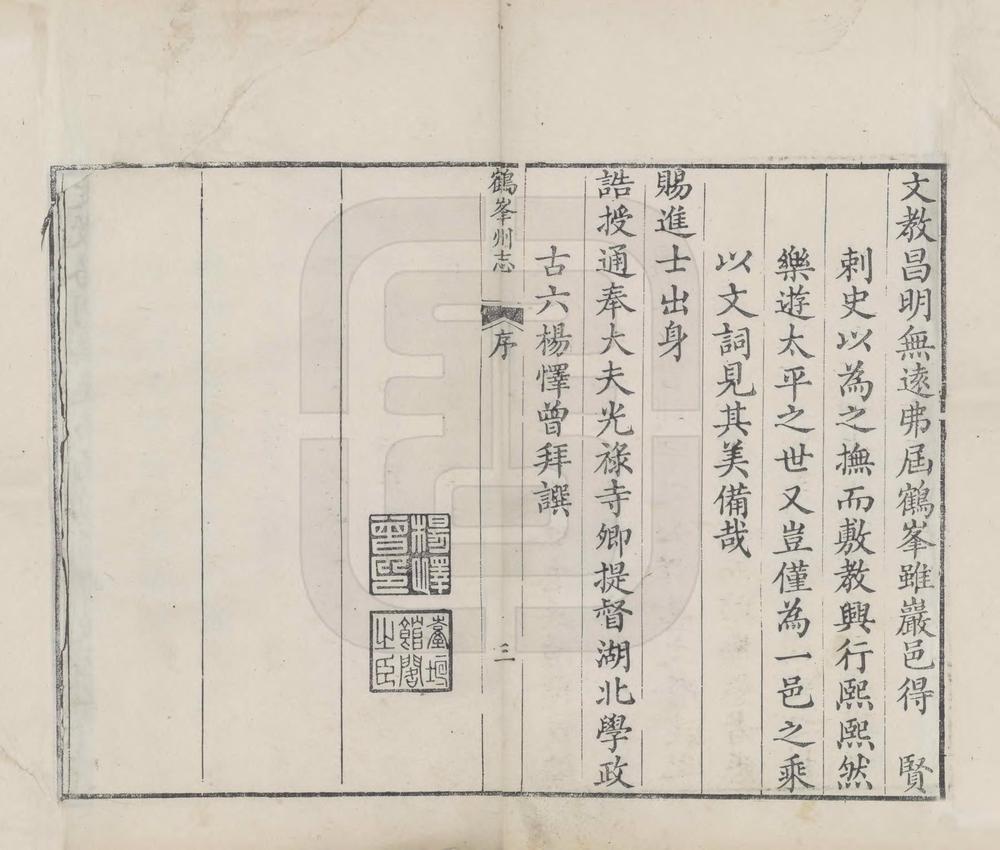 文教昌明無遠弗屆鶴峯雖巖邑得　賢
刺史以為之撫而敷教興行熙熙然
樂遊太平之世又豈僅為一邑之乘
以文詞見其美備哉
賜進士出身
誥授通奉大夫光祿寺卿提督湖北學政
古六楊懌曾拜譔
鶴峯州志
序
三
楊懌曾印
臺垣館閣之臣